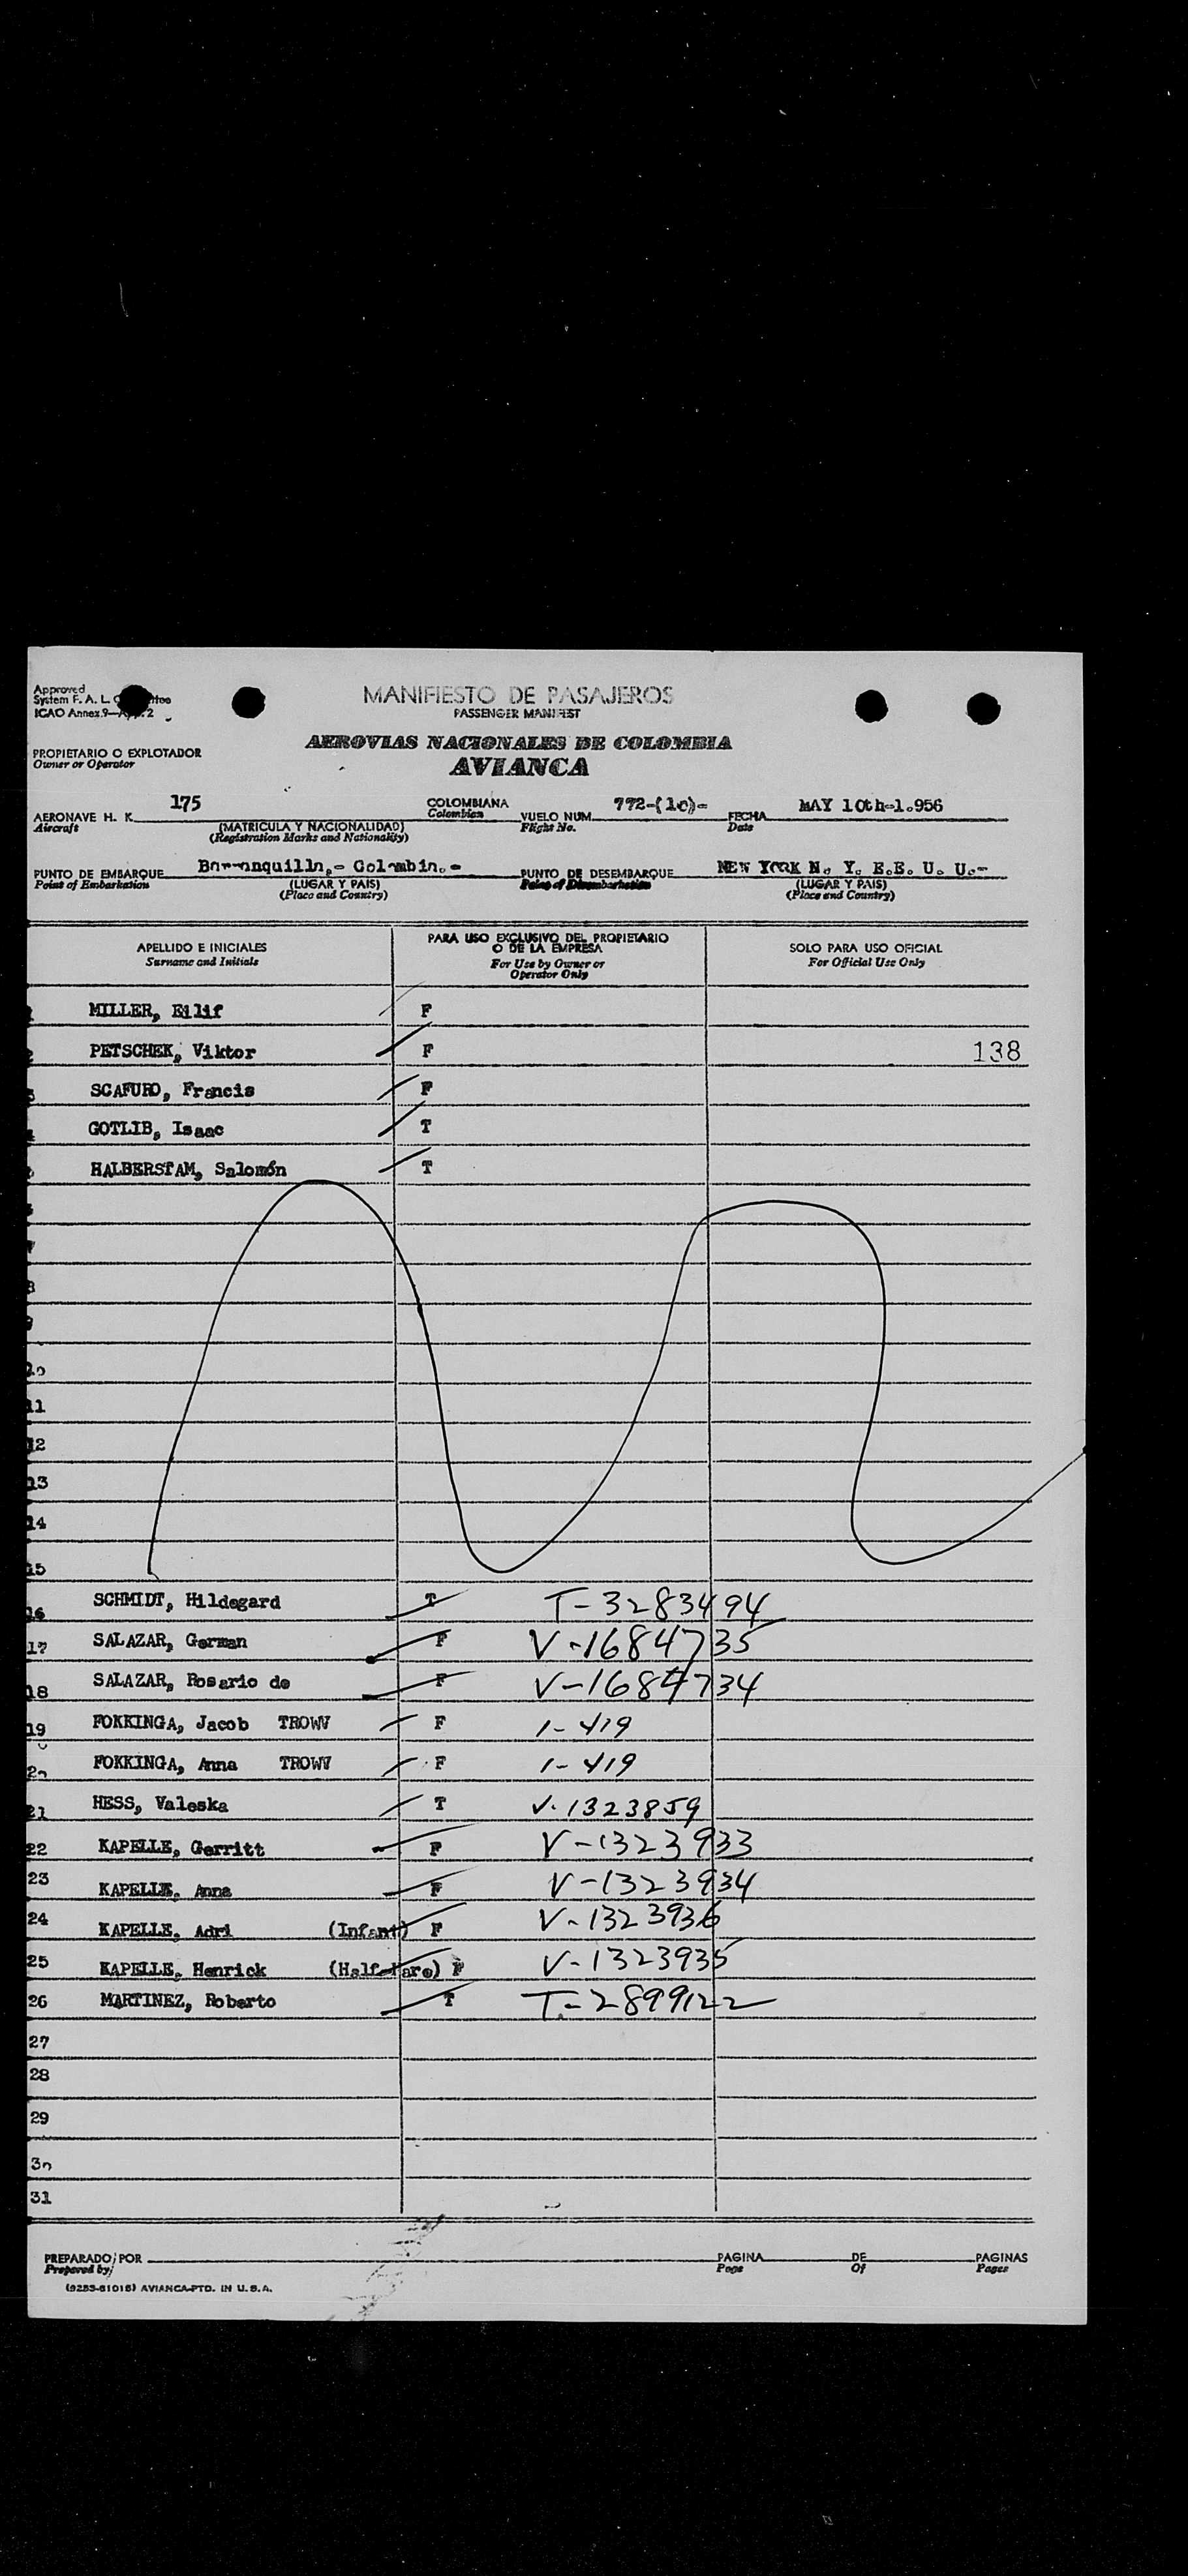 Approved
System F. A. L.
ICAO Annex 9
MANIFIESTO DE PASAJEROS
PASSENGER MANIFEST
PROPIETARIO O EXPLOTADOR
Owner or Operator
AEROVIAS NACIONALES DE COLOMBIA
AVIANCA
AERONAVE H. K. 175 COLOMBIANA VUELO NUM. 772-(10)- FECHA MAY 10th-1.956
Aircraft Colombian Flight No. Date
(MATRICULA Y NACIONALIDAD)
(Registration Marks and Nationality)
PUNTO DE EMBARQUE Barranquilla,- Colombia.- PUNTO DE DESEMBARQUE NEW YORK N. Y. E.E. U. U.-
Point of Embarkation (LUGAR Y PAIS) Point of Disembarkation (LUGAR Y PAIS)
(Place and Country) (Place and Country)
APELLIDO E INICIALES PARA USO EXCLUSIVO DEL PROPIETARIO O DE LA EMPRESA SOLO PARA USO OFICIAL
Surname and Initials For Use by Owner or Operator Only For Official Use Only
MILLER, Eilif F
PETSCHEK, Viktor F 138
SCAFURO, Francis F
GOTLIB, Isaac T
HALBERSTAM, Salomón T
8
9
10
11
12
13
14
15
16 SCHMIDT, Hildegard T T-3283494
17 SALAZAR, German F V-1684735
18 SALAZAR, Rosario de F V-1684734
19 FOKKINGA, Jacob TROWV F 1-419
20 FOKKINGA, Anna TROWV F 1-419
21 HESS, Valeska T V-1323859
22 KAPELLE, Gerritt F V-1323933
23 KAPELLE, Anna F V-1323934
24 KAPELLE, Adri (Infant) F V-1323936
25 KAPELLE, Henrick (Half Fare) F V-1323935
26 MARTINEZ, Roberto T T-2899122
27
28
29
30
31
PREPARADO POR PAGINA DE PAGINAS
Prepared by Page Of Pages
(9283-61018) AVIANCA-PTD. IN U.S.A.